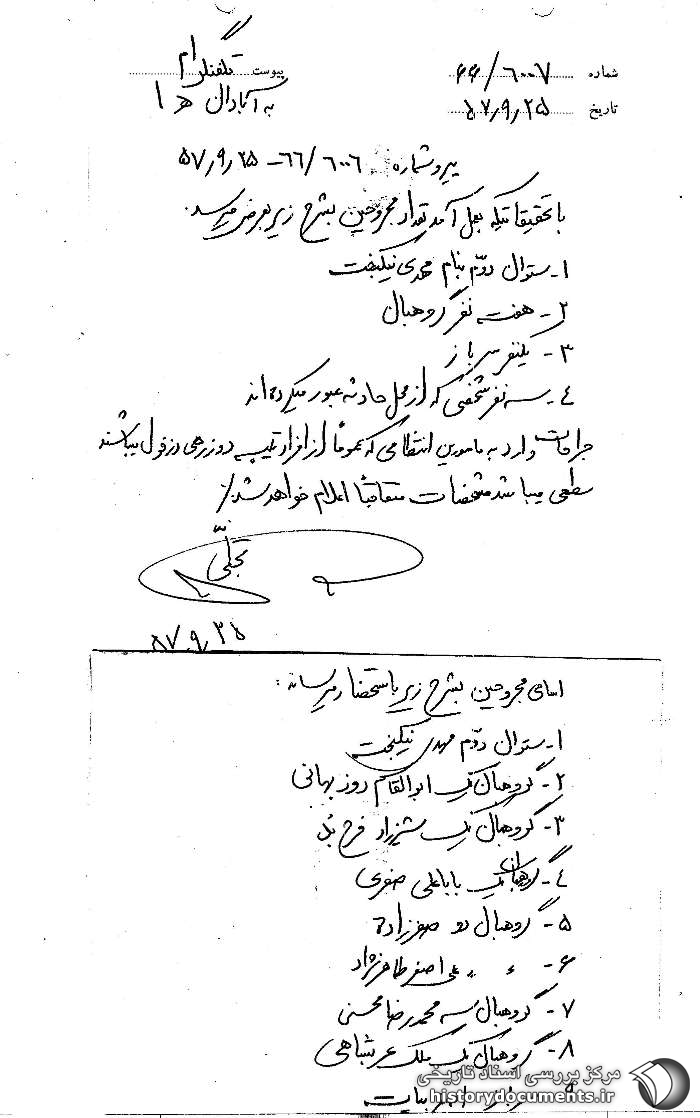 شماره ۶۶/۶۰۰۷
تاریخ ۵۷٫۹٫۲۵
پیوست تلفنگرام
به
پیرو شماره ۶۶/۶۰۰۶ - ۵۷٫۹٫۲۵
با تحقیقاتیکه بعمل آمد تعداد مجروحین بشرح زیر بعرض میرسد.
۱- ستوان دوم بنام مهدی نیکبخت
۲- هفت نفر گروهبان
۳- یکنفر سرباز
۴- سه نفر شخصی که از محل حادثه عبور میکرده‌اند
جراحات وارد به مامورین انتظامی که عموماً از افراد تیپ دو زرهی دزفول میباشند
سطحی میباشد مشخصات متعاقباً اعلام خواهد شد./
تجلی
۵۷٫۹٫۲۵
اسامی مجروحین بشرح زیر باستحضار میرساند:
۱- ستوان دوم مهدی نیکبخت
۲- گروهبان یک ابوالقاسم روزبهانی
۳- گروهبان یک شیرزاد فرخ
۴- گروهبان یک باباعلی صفری
۵- گروهبان دو صفرزاده
۶- " " علی اصغر طاهرنژاد
۷- گروهبان سه محمدرضا محسنی
۸- گروهبان یک ملک عرشاهی
مرکز بررسی اسناد تاریخی
historydocuments.ir